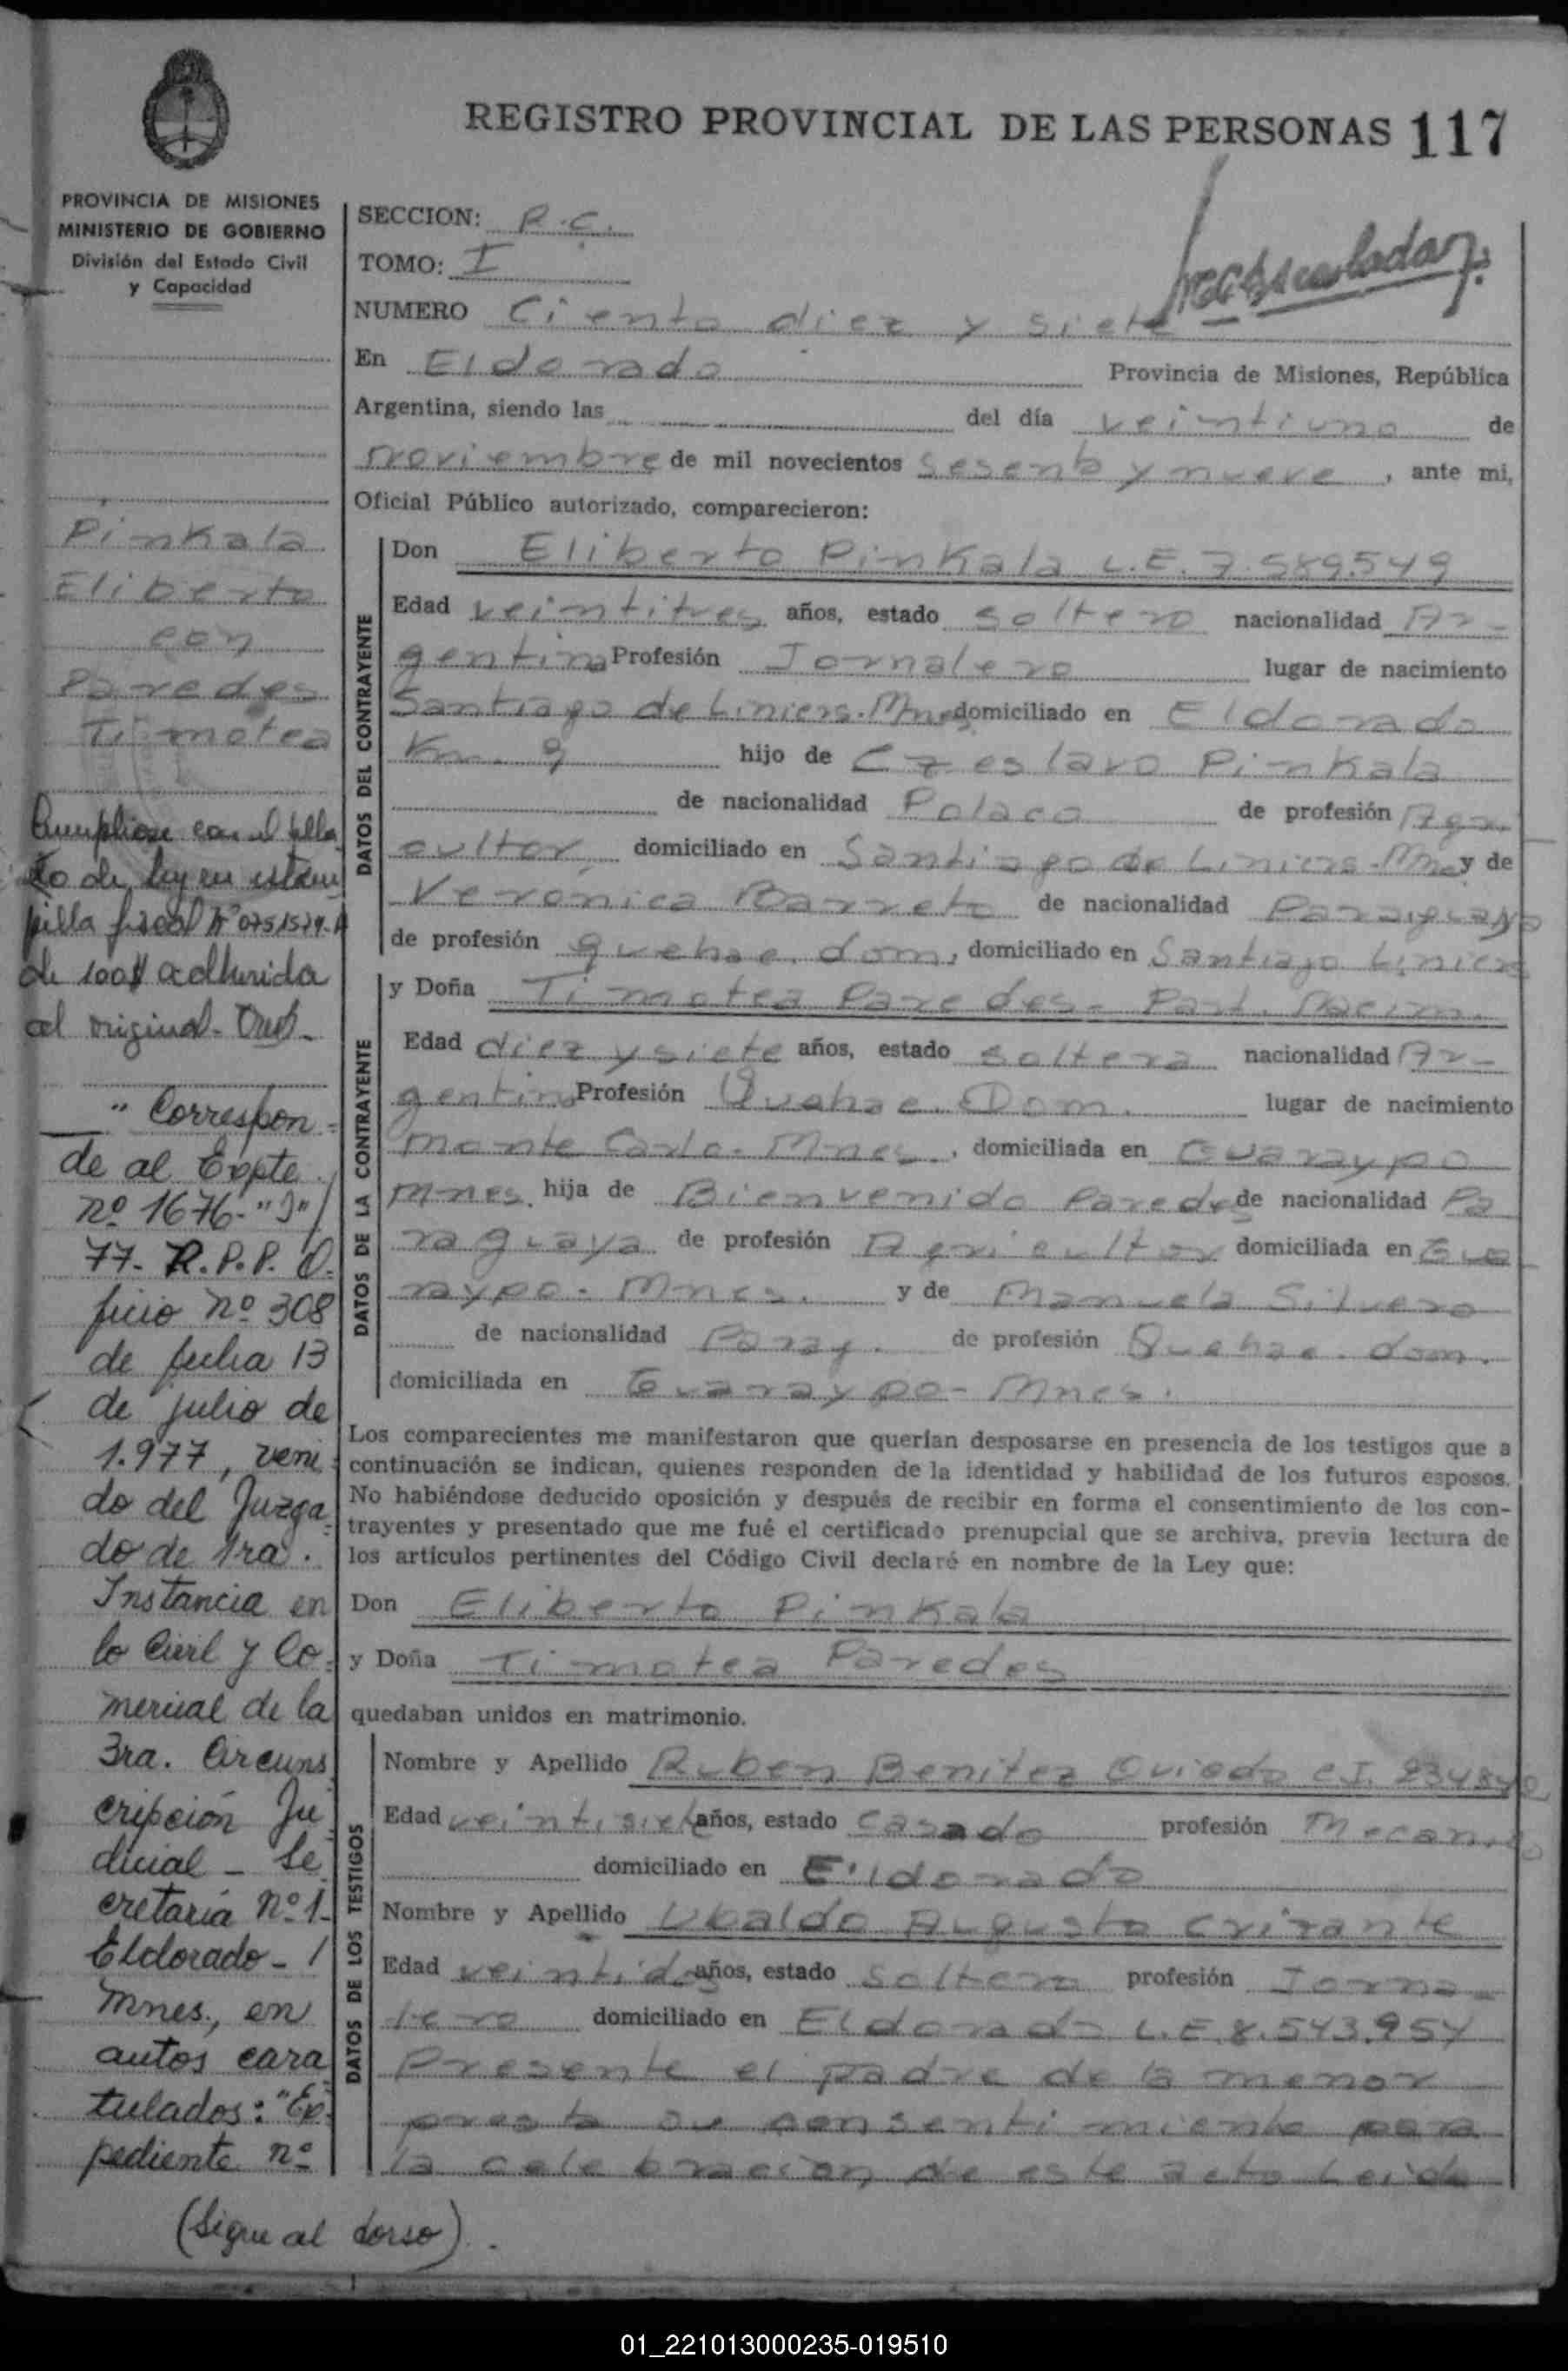 REGISTRO PROVINCIAL DE LAS PERSONAS 117
PROVINCIA DE MISIONES
MINISTERIO DE GOBIERNO
División del Estado Civil
y Capacidad
Pinkala
Eliberto
con
Paredes
Timotea
Cumpliose con el sella
do de ley en estam
pilla fiscal Nº 0751579-A
de 100$ adherida
al original.
" Correspon=
de al Expte.
nº 1676-"J"/
77- R.P.P. O-
ficio nº 308
de fecha 13
de julio de
1.977, veni-
do del Juzga-
do de 1ra.
Instancia en
lo Civil y Co-
mercial de la
3ra. Circuns
cripción Ju
dicial - Se
cretaría nº 1-
Eldorado - /
Mnes., en
autos cara
tulados: "Ex-
pediente nº
(Sigue al dorso).
SECCION: R.C.
TOMO: I
NUMERO Ciento diez y siete
En Eldorado Provincia de Misiones, República
Argentina, siendo las del día veintiuno de
noviembre de mil novecientos sesenta y nueve, ante mi,
Oficial Público autorizado, comparecieron:
DATOS DEL CONTRAYENTE
Don Eliberto Pinkala L.E. 7.589.549
Edad veintitres años, estado soltero nacionalidad Ar-
gentina Profesión Jornalero lugar de nacimiento
Santiago de Liniers. Mnes domiciliado en Eldorado
Km. 9 hijo de Czeslavo Pinkala
de nacionalidad Polaca de profesión Agri
cultor domiciliado en Santiago de Liniers. Mnes y de
Verónica Barreto de nacionalidad Paraguaya
de profesión quehac. dom, domiciliado en Santiago Liniers
DATOS DE LA CONTRAYENTE
y Doña Timotea Paredes - Part. Nacim.
Edad diez y siete años, estado soltera nacionalidad Ar-
gentina Profesión Quehac. Dom. lugar de nacimiento
Monte Carlo. Mnes., domiciliada en Guaraypo
Mnes. hija de Bienvenido Paredes de nacionalidad Pa
raguaya de profesión Agricultor domiciliada en Gua
raypo. Mnes. y de Manuela Silvero
de nacionalidad Parag. de profesión Quehac. dom.
domiciliada en Guaraypo- Mnes.
Los comparecientes me manifestaron que querían desposarse en presencia de los testigos que a
continuación se indican, quienes responden de la identidad y habilidad de los futuros esposos.
No habiéndose deducido oposición y después de recibir en forma el consentimiento de los con-
trayentes y presentado que me fué el certificado prenupcial que se archiva, previa lectura de
los artículos pertinentes del Código Civil declaré en nombre de la Ley que:
Don Eliberto Pinkala
y Doña Timotea Paredes
quedaban unidos en matrimonio.
DATOS DE LOS TESTIGOS
Nombre y Apellido Ruben Benitez Oviedo C.I.
Edad veintisiete años, estado casado profesión Mecanico
domiciliado en Eldorado
Nombre y Apellido Ubaldo Augusto
Edad veintidos años, estado soltero profesión Jorna-
lero domiciliado en Eldorado L.E. 8.543.954
Presente el padre de la menor
presta su consentimiento para
la celebracion de este acto Leida
01_221013000235-019510